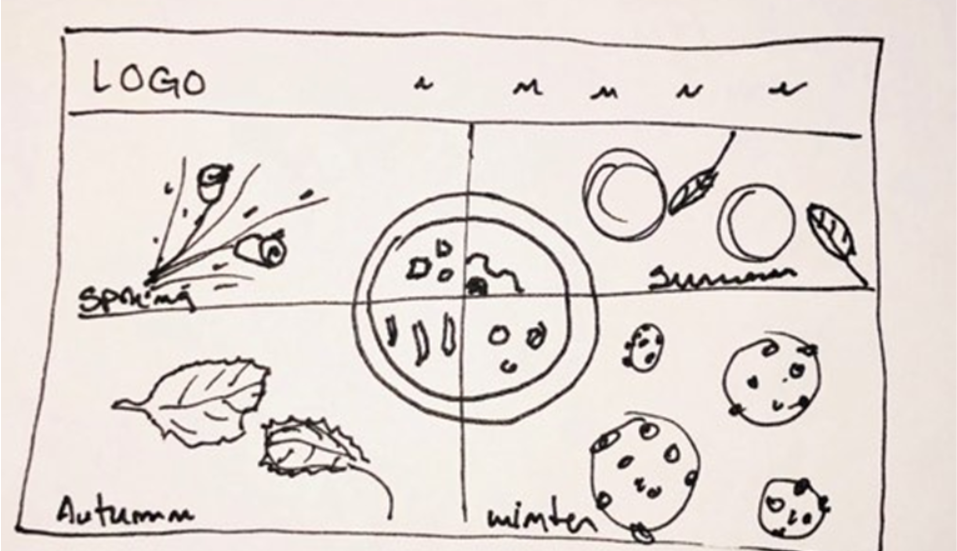 LOGO
Spring
Summer
Autumn
winter